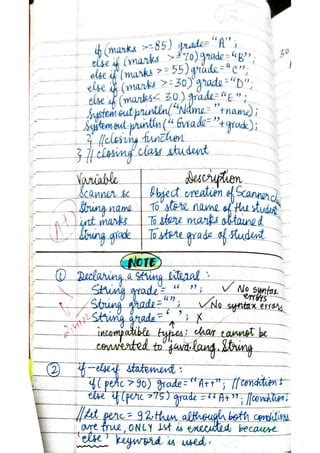 if (marks >=85) grade="A";
else if (marks >=70) grade="B";
else if (marks >=55) grade="C";
else if (marks >=30) grade="D";
else if (marks<30) grade="E";
System.out.println("Name: "+name);
System.out.println("Grade="+grade);
} //closing function
} // closing class student
Variable Description
Scanner sc Object creation of Scanner class
String name To store name of the student
int marks To store marks obtained
String grade To store grade of student
NOTE
① Declaring a string literal :
String grade = " "; ✓ No syntax errors
String grade=""; ✓ No syntax errors
String grade=' '; x
incompatible types: char cannot be
converted to java.lang.String
② if-elseif statement :
if (perc >90) grade="A++"; //condition 1
else if (perc >75) grade="A+"; //condition 2
//Let perc = 92. then although both conditions
are true, ONLY 1st is executed because
'else' keyword is used.